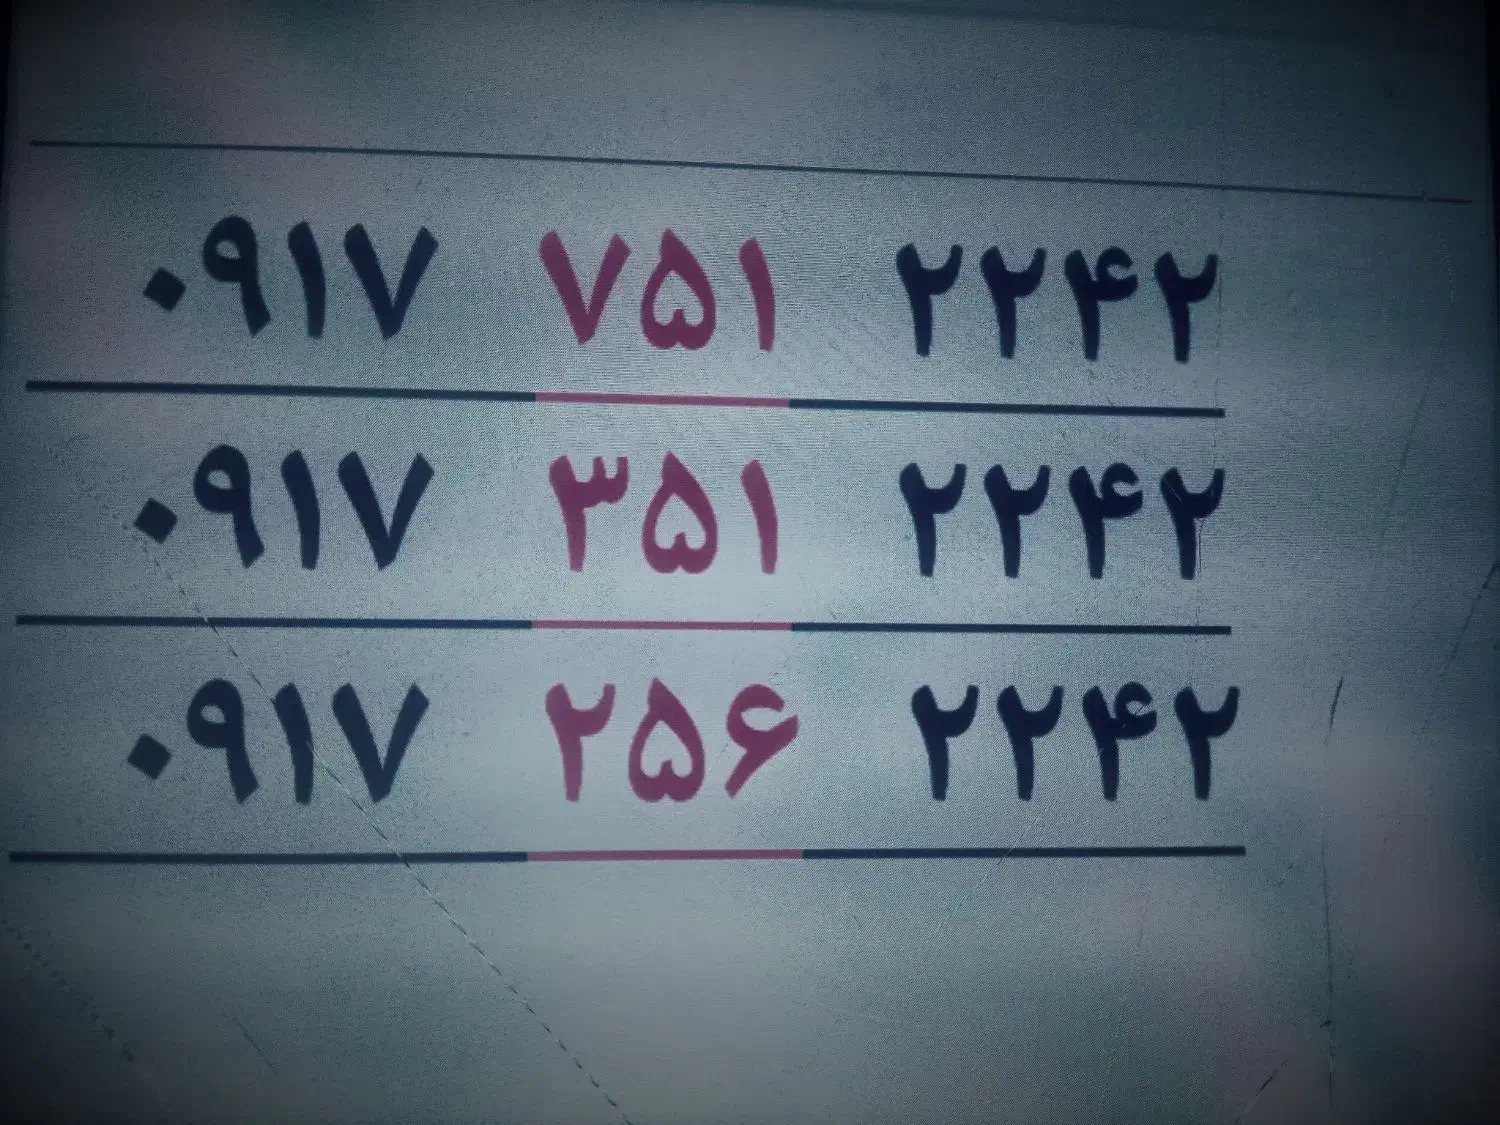 ۰۹۱۷ ۷۵۱ ۲۲۴۲
۰۹۱۷ ۳۵۱ ۲۲۴۲
۰۹۱۷ ۲۵۶ ۲۲۴۲